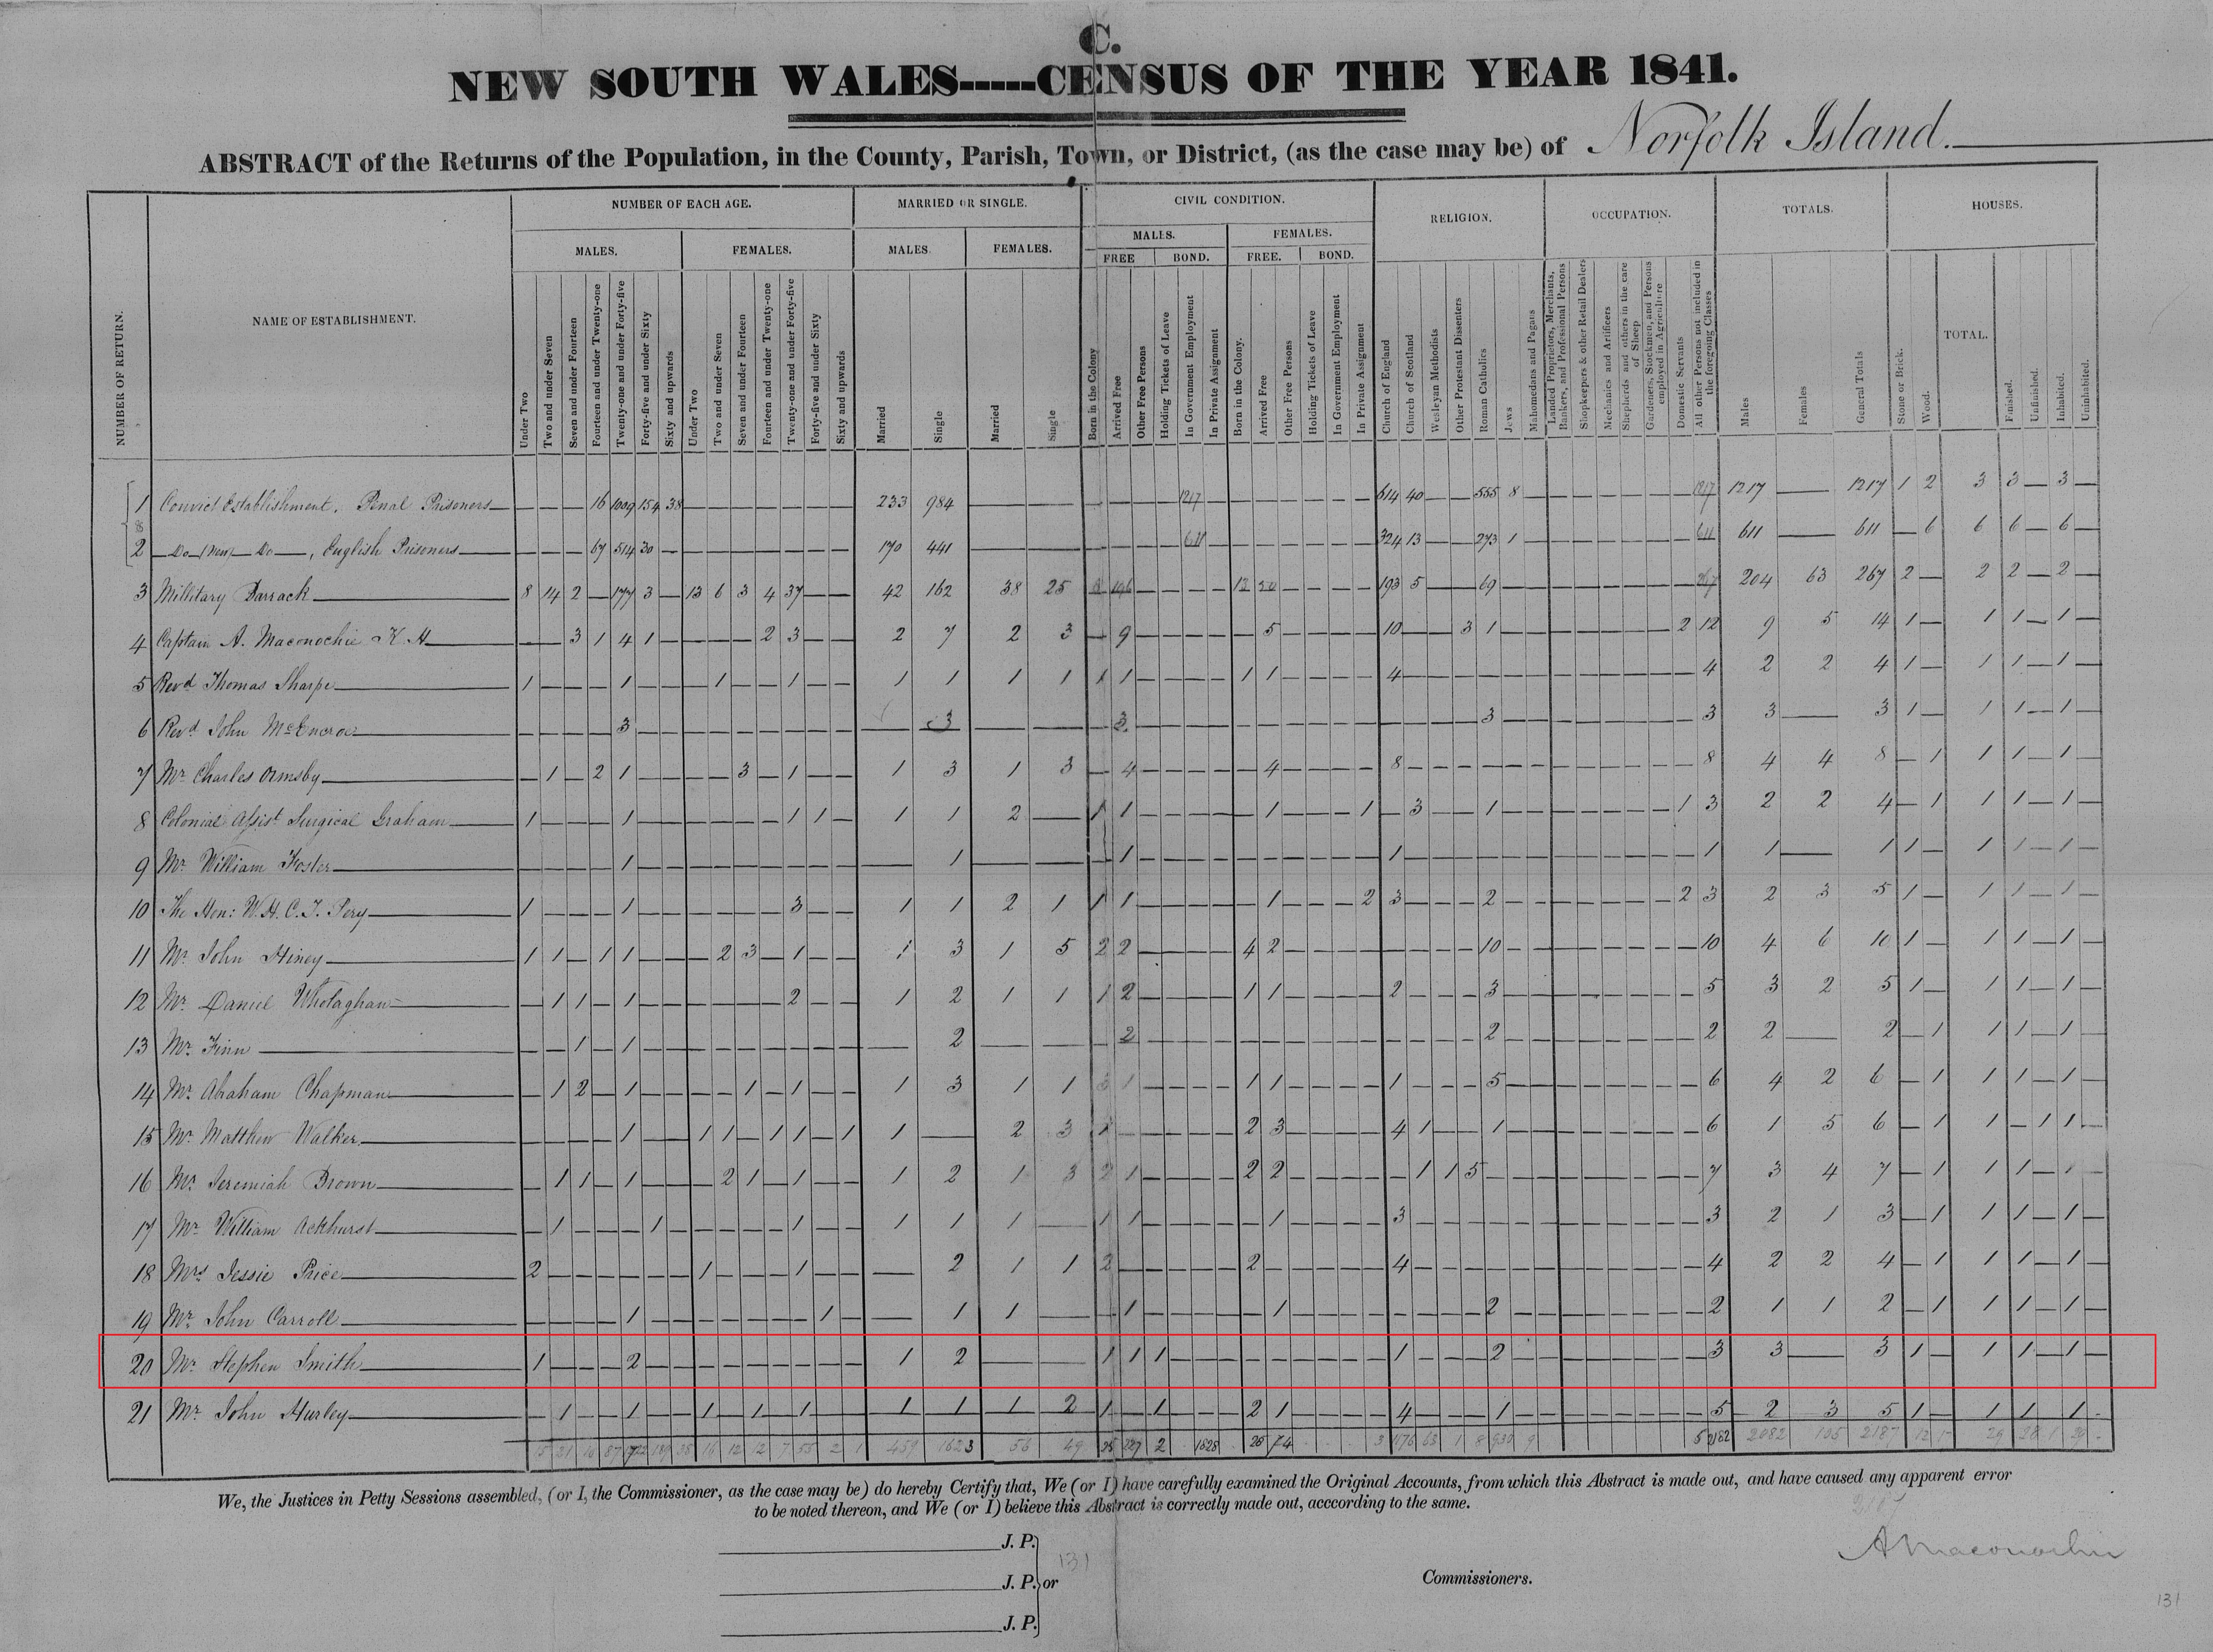 C.
NEW SOUTH WALES-----CENSUS OF THE YEAR 1841.
ABSTRACT of the Returns of the Population, in the County, Parish, Town, or District, (as the case may be) of Norfolk Island.
NUMBER OF RETURN. NAME OF ESTABLISHMENT. NUMBER OF EACH AGE. MARRIED OR SINGLE. CIVIL CONDITION. RELIGION. OCCUPATION. TOTALS. HOUSES.
MALES. FEMALES. MALES. FEMALES. MALES. FEMALES.
FREE BOND. FREE. BOND. TOTAL.
Under Two Two and under Seven Seven and under Fourteen Fourteen and under Twenty-one Twenty-one and under Forty-five Forty-five and under Sixty Sixty and upwards Under Two Two and under Seven Seven and under Fourteen Fourteen and under Twenty-one Twenty-one and under Forty-five Forty-five and under Sixty Sixty and upwards Married Single Married Single Born in the Colony Arrived Free Other Free Persons Holding Tickets of Leave In Government Employment In Private Assignment Born in the Colony. Arrived Free Other Free Persons Holding Tickets of Leave In Government Employment In Private Assignment Church of England Church of Scotland Wesleyan Methodists Other Protestant Dissenters Roman Catholics Jews Mahomedans and Pagans Landed Proprietors, Merchants, Bankers, and Professional Persons Shopkeepers & other Retail Dealers Mechanics and Artificers Shepherds and others in the care of Sheep Gardeners, Stockmen, and Persons employed in Agriculture Domestic Servants All other Persons not included in the foregoing Classes Males Females General Totals Stone or Brick. Wood. Finished. Unfinished. Inhabited. Uninhabited.
1 Convict Establishment, Penal Prisoners — — — 16 1009 154 38 — — — — — — — 233 984 — — — — — — 1217 — — — — — — — 614 40 — — 555 8 — — — — — — — 1217 1217 — 1217 1 2 3 3 — 3 —
&
2 Do (New) Do, English Prisoners — — — 67 514 30 — — — — — — — — 170 441 — — — — — — 611 — — — — — — — 324 13 — — 273 1 — — — — — — — 611 611 — 611 — 6 6 6 — 6 —
3 Military Barrack 8 14 2 — 177 3 — 13 6 3 4 37 — — 42 162 38 25 8 196 — — — — 13 50 — — — — 193 5 — — 69 — — — — — — — — 267 204 63 267 2 — 2 2 — 2 —
4 Captain A. Maconochie K.H. — — 3 1 4 1 — — — — 2 3 — — 2 7 2 3 — 9 — — — — — 5 — — — — 10 — — 3 1 — — — — — — — 2 12 9 5 14 1 — 1 1 — 1 —
5 Revd Thomas Sharpe 1 — — — 1 — — — 1 — — 1 — — 1 1 1 1 1 1 — — — — 1 1 — — — — 4 — — — — — — — — — — — — 4 2 2 4 1 — 1 1 — 1 —
6 Revd John McEncroe — — — — 3 — — — — — — — — — — 3 — — — 3 — — — — — — — — — — — — — — 3 — — — — — — — — 3 3 — 3 1 — 1 1 — 1 —
7 Mr Charles Ormsby — 1 — 2 1 — — — — 3 — 1 — — 1 3 1 3 — 4 — — — — — 4 — — — — 8 — — — — — — — — — — — — 8 4 4 8 — 1 1 1 — 1 —
8 Colonial Assist Surgical Graham 1 — — — 1 — — — — — — 1 1 — 1 1 2 — 1 1 — — — — — 1 — — — 1 — 3 — — 1 — — — — — — — 1 3 2 2 4 — 1 1 1 — 1 —
9 Mr William Foster — — — — 1 — — — — — — — — — — 1 — — — 1 — — — — — — — — — — 1 — — — — — — — — — — — — 1 1 — 1 1 — 1 1 — 1 —
10 The Hon: W.H.C.J. Pery 1 — — — 1 — — — — — — 3 — — 1 1 2 1 1 1 — — — — — 1 — — — 2 3 — — — 2 — — — — — — — 2 3 2 3 5 1 — 1 1 — 1 —
11 Mr John Hiney 1 1 — 1 1 — — — 2 3 — 1 — — 1 3 1 5 2 2 — — — — 4 2 — — — — — — — — 10 — — — — — — — — 10 4 6 10 1 — 1 1 — 1 —
12 Mr Daniel — 1 1 — 1 — — — — — — 2 — — 1 2 1 1 1 2 — — — — 1 1 — — — — 2 — — — 3 — — — — — — — — 5 3 2 5 1 — 1 1 — 1 —
13 Mr Finn — — 1 — 1 — — — — — — — — — — 2 — — — 2 — — — — — — — — — — — — — — 2 — — — — — — — — 2 2 — 2 — 1 1 1 — 1 —
14 Mr Abraham Chapman — 1 2 — 1 — — — — 1 — 1 — — 1 3 1 1 3 1 — — — — 1 1 — — — — 1 — — — 5 — — — — — — — — 6 4 2 6 — 1 1 1 — 1 —
15 Mr Matthew Walker — — — — 1 — — 1 1 — 1 1 — 1 1 — 2 3 1 — — — — — 2 3 — — — — 4 1 — — 1 — — — — — — — — 6 1 5 6 — 1 1 — 1 1 —
16 Mr Jeremiah Brown — 1 1 — 1 — — — 2 1 — 1 — — 1 2 1 3 2 1 — — — — 2 2 — — — — — 1 1 5 — — — — — — — — — 7 3 4 7 — 1 1 1 — 1 —
17 Mr William Ackhurst — 1 — — — 1 — — — — — 1 — — 1 1 1 — 1 1 — — — — — 1 — — — — 3 — — — — — — — — — — — — 3 2 1 3 — 1 1 1 — 1 —
18 Mrs Jessie Price 2 — — — — — — 1 — — — 1 — — — 2 1 1 2 — — — — — 2 — — — — — 4 — — — — — — — — — — — — 4 2 2 4 — 1 1 1 — 1 —
19 Mr John Carroll — — — — 1 — — — — — — — 1 — — 1 1 — — 1 — — — — — 1 — — — — — — — — 2 — — — — — — — — 2 1 1 2 — 1 1 1 — 1 —
20 Mr Stephen Smith 1 — — — 2 — — — — — — — — — 1 2 — — 1 1 1 — — — — — — — — — 1 — — — 2 — — — — — — — — 3 3 — 3 1 — 1 1 — 1 —
21 Mr John Hurley — 1 — — 1 — — 1 — 1 — 1 — — 1 1 1 2 1 — 1 — — — 2 1 — — — — 4 — — — 1 — — — — — — — — 5 2 3 5 1 — 1 1 1 -
15 21 87 189 38 16 12 12 7 55 2 1 459 1623 56 49 25 227 2 1828 26 74 1176 63 1 8 930 9 5 2182 2082 105 2187 12 17 29 28 1 29 -
We, the Justices in Petty Sessions assembled, (or I, the Commissioner, as the case may be) do hereby Certify that, We (or I) have carefully examined the Original Accounts, from which this Abstract is made out, and have caused any apparent error
to be noted thereon, and We (or I) believe this Abstract is correctly made out, acccording to the same.
2187
A Maconochie
J. P.
131
J. P. or
Commissioners.
J. P.
131